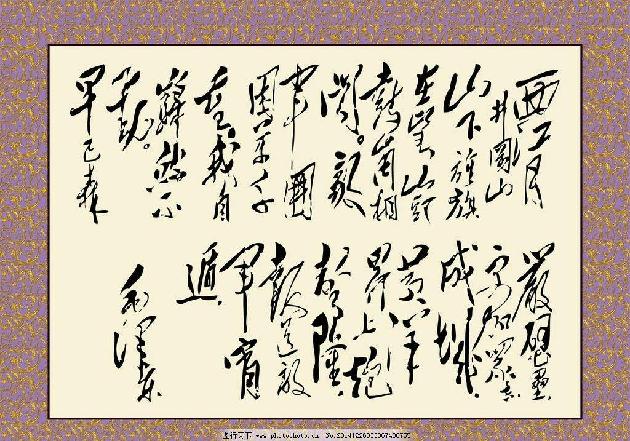 西江月
井岡山
山下旌旗
在望山頭
鼓角相
聞。敵
軍圍
困萬千
重我自
巋然不
動。
早已森
嚴壁壘
更加眾志
成城
黃洋
界上炮
聲隆
報道敵
軍宵
遁
毛澤東